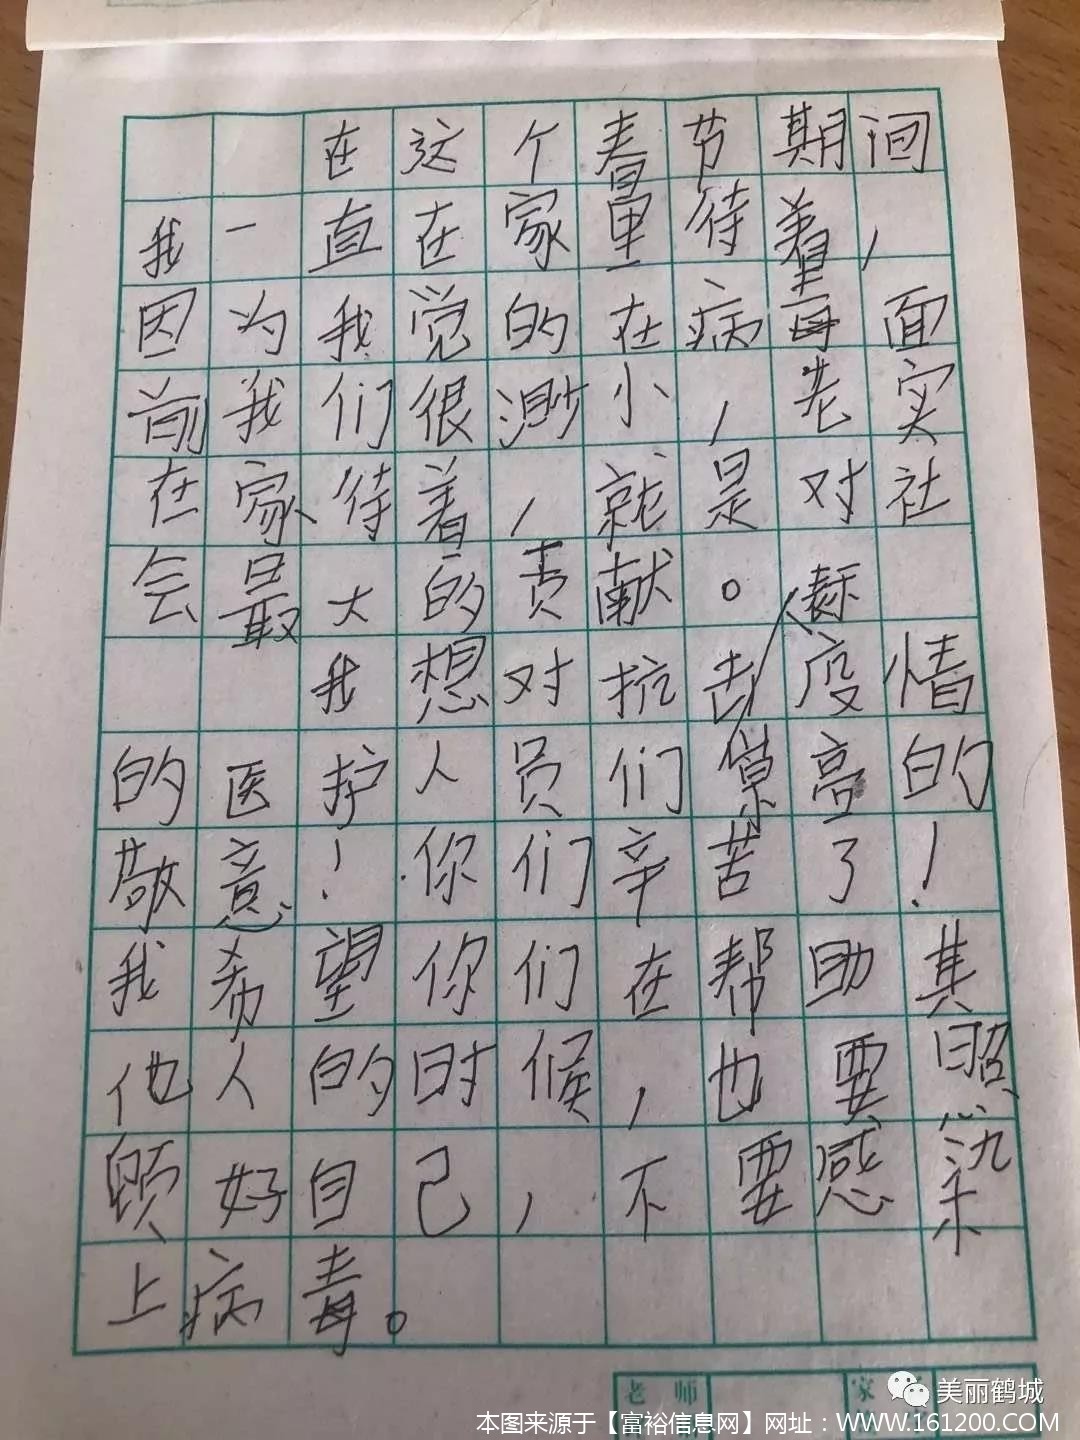 在这个春节期间
我一直在家里待着，
因为我觉的在病毒面
前我们很渺小，老实
在家待着，就是对社
会最大的贡献。
我想对抗击疫情
的医护人员们崇高的
敬意！你们辛苦了！
我希望你们在帮助其
他人的时候，也要照
顾好自己，不要感染
上病毒。
老师
家
美丽鹤城
本图来源于【富裕信息网】网址：WWW.161200.COM